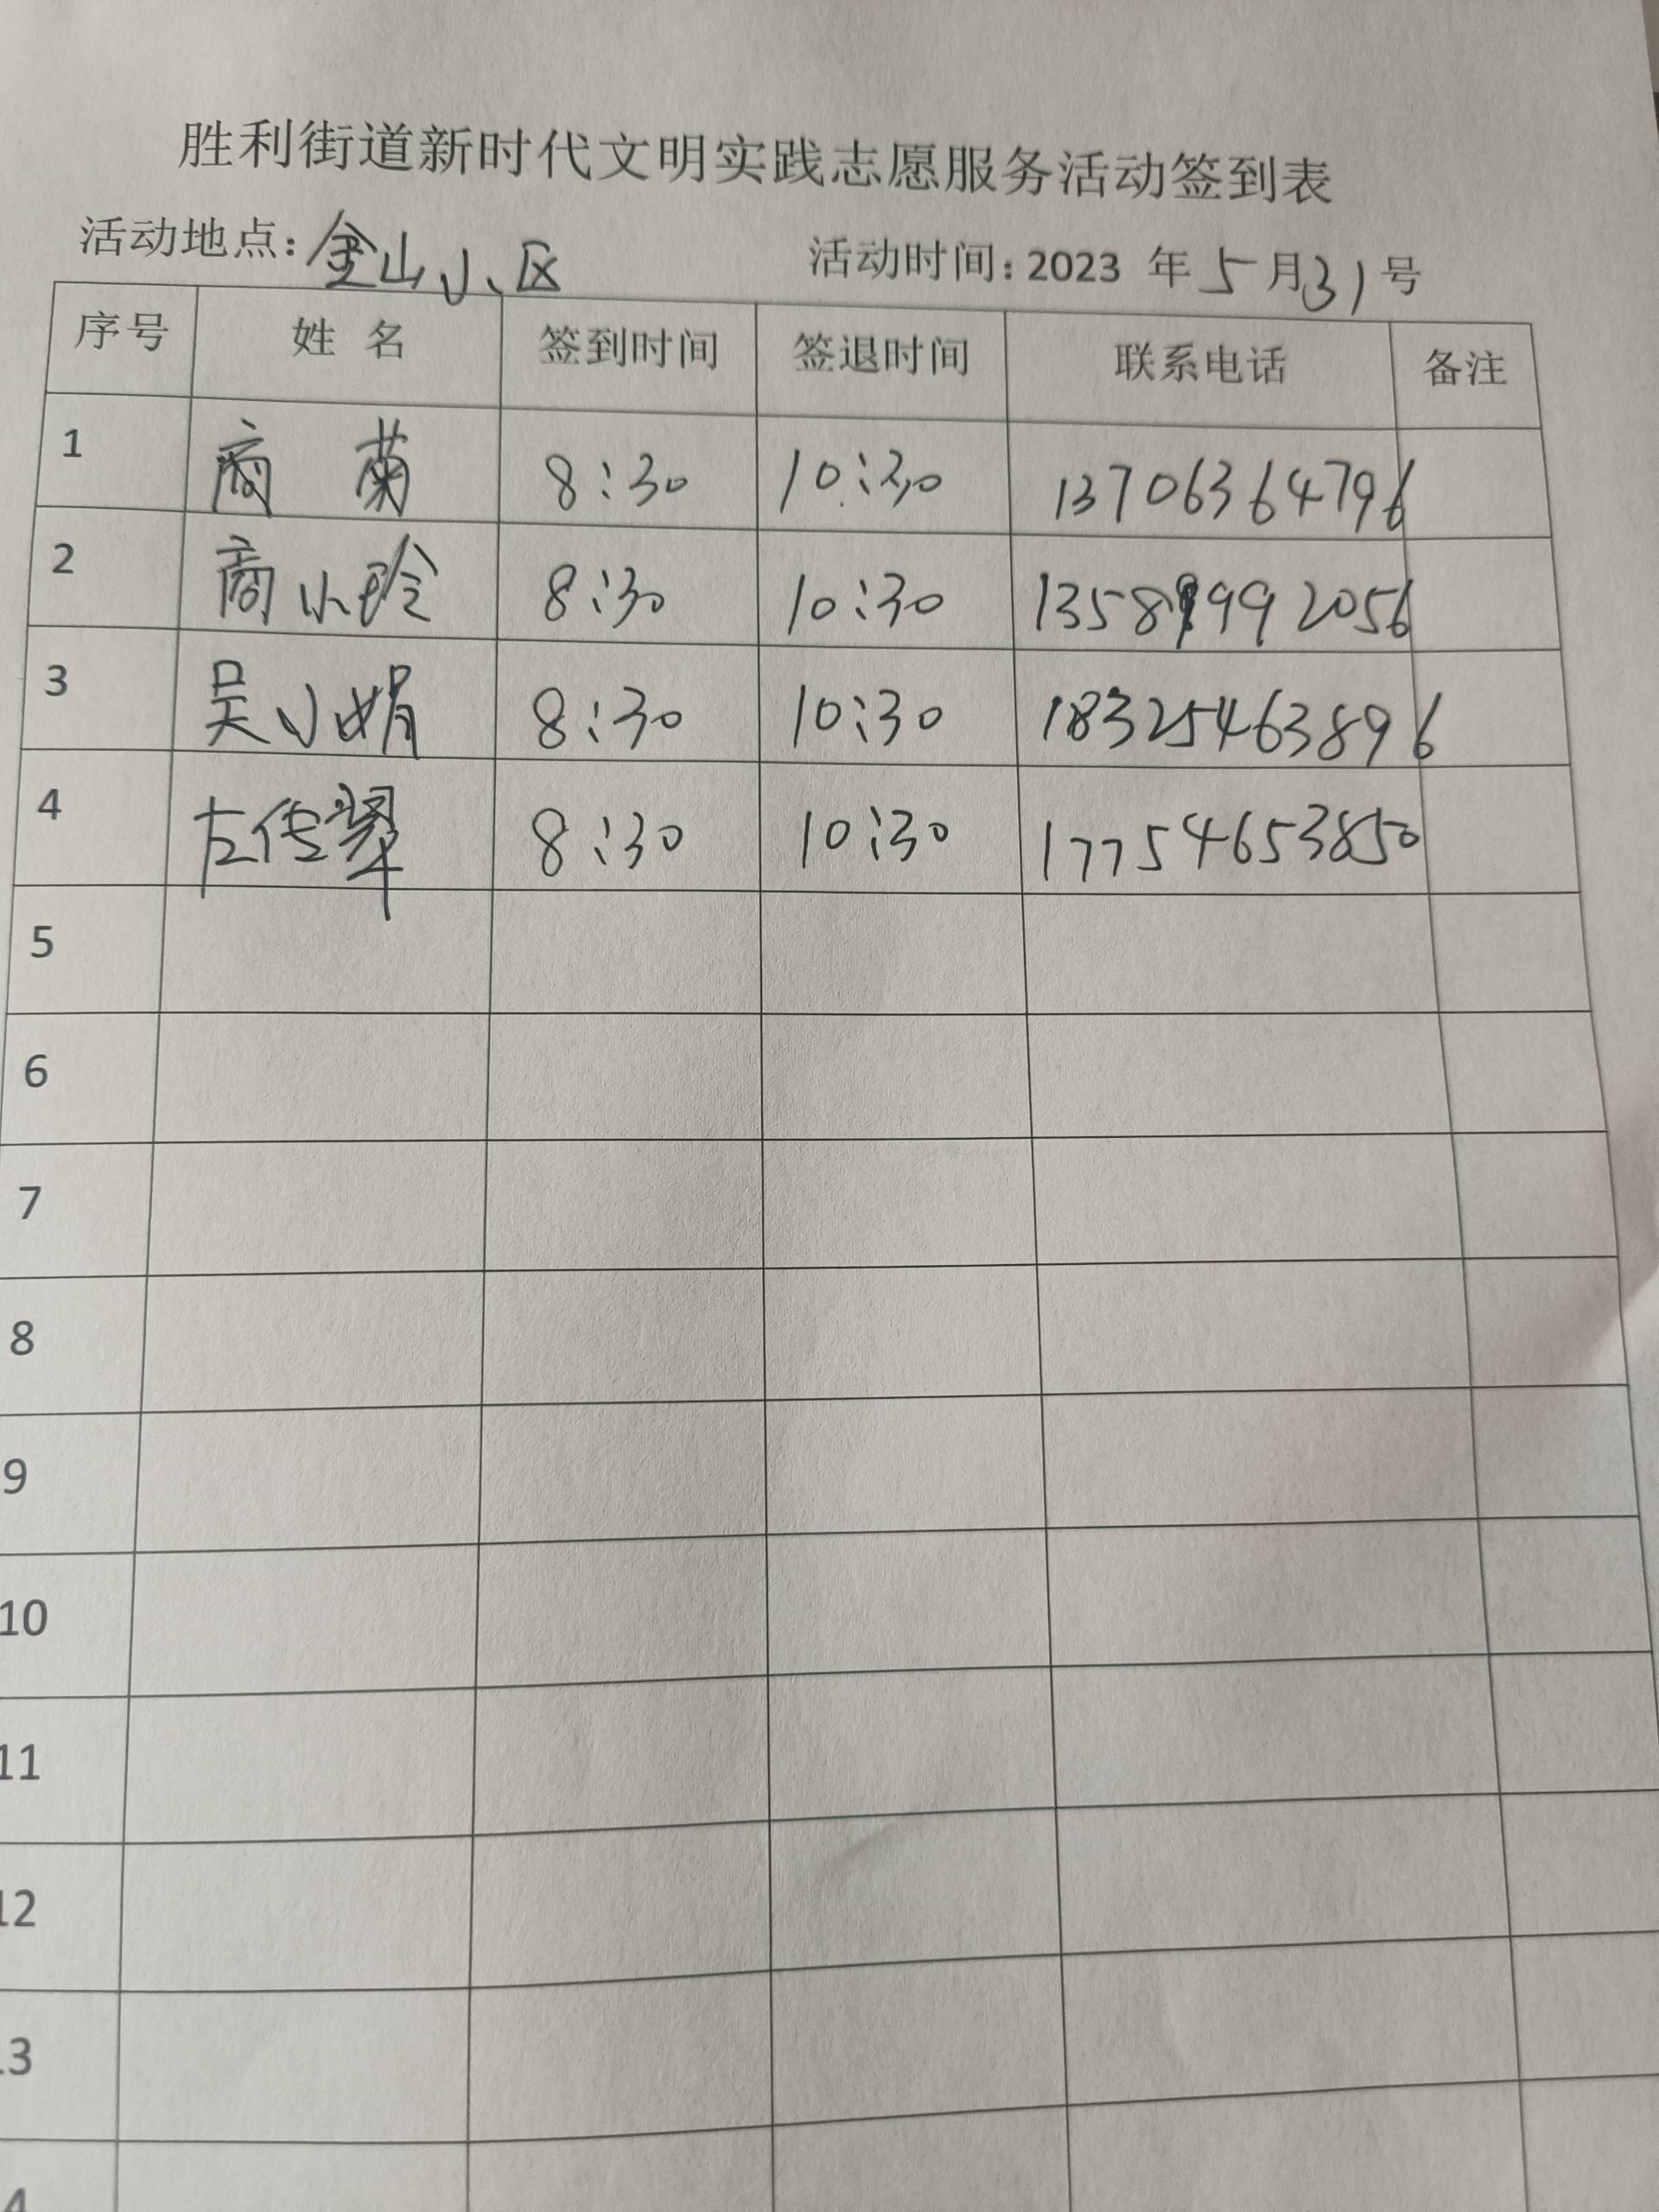 胜利街道新时代文明实践志愿服务活动签到表
活动地点：金山小区 活动时间：2023 年 5 月 31 号
序号 姓 名 签到时间 签退时间 联系电话 备注
1 商 菊 8:30 10:30 13706364796
2 商小玲 8:30 10:30 13589992056
3 吴小娟 8:30 10:30 18325463896
4 左传翠 8:30 10:30 17754653850
5
6
7
8
9
10
11
12
13